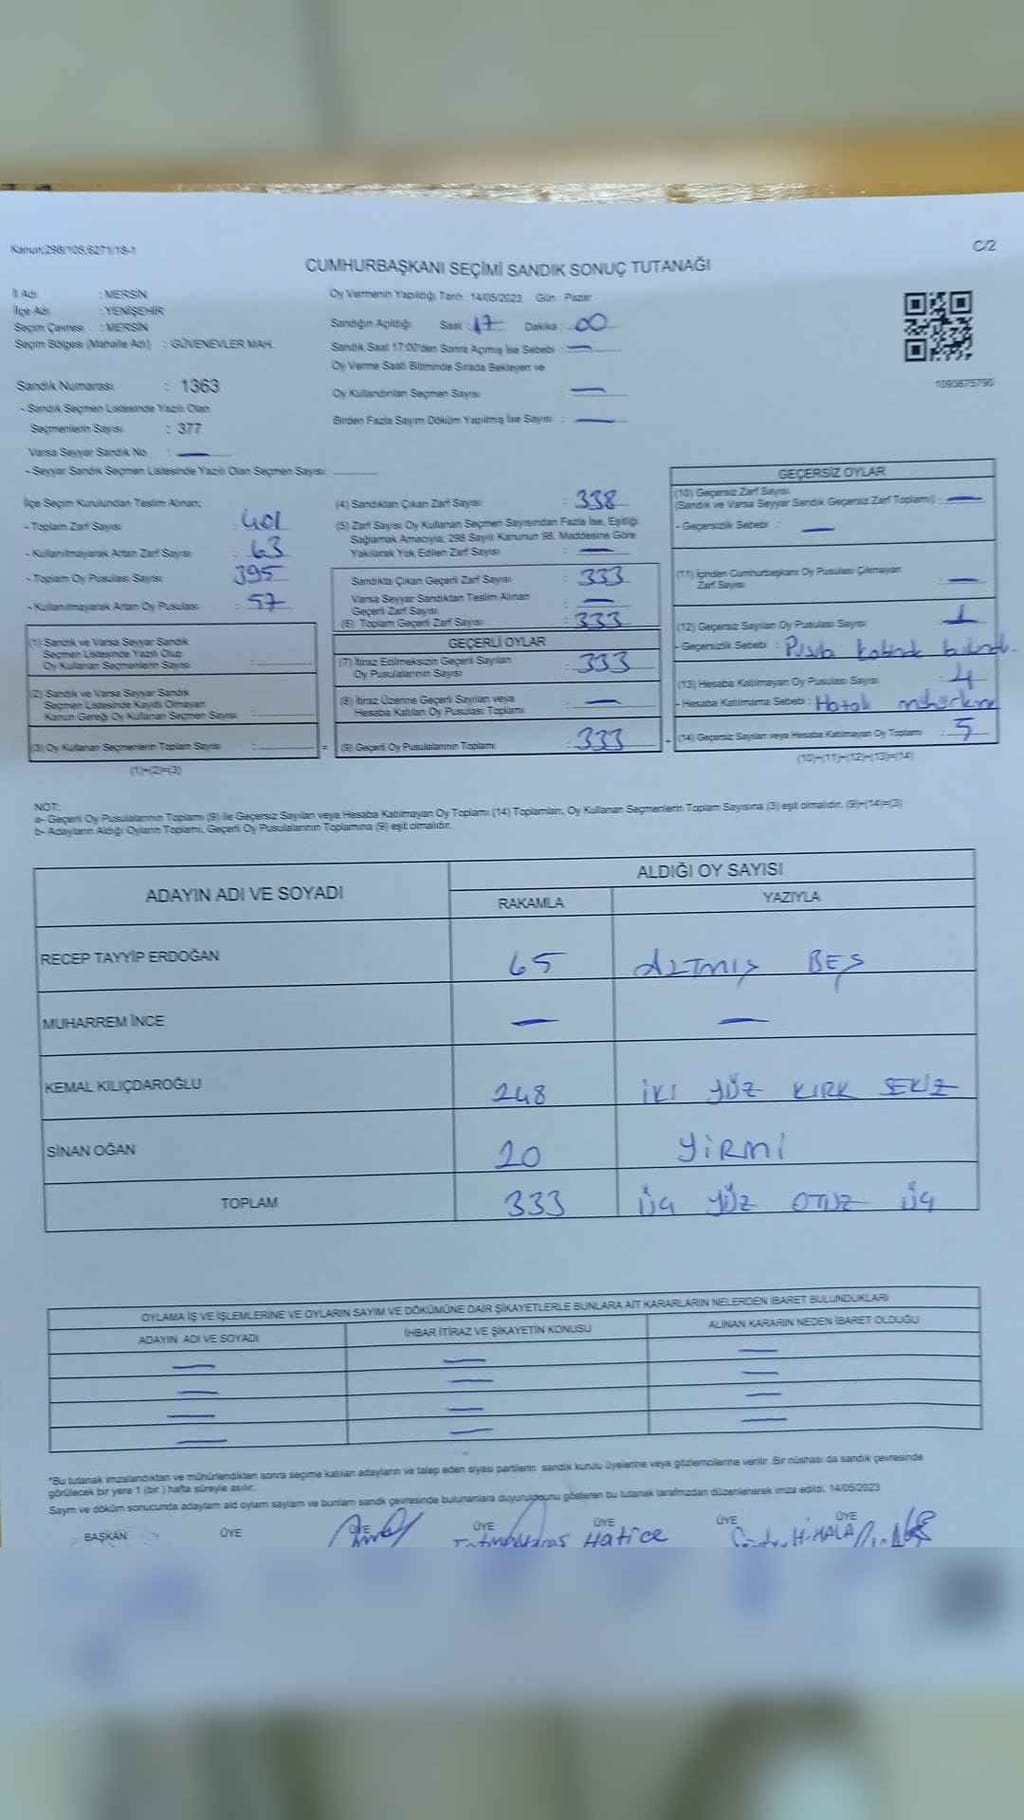 Kanun:298/105,6271/18-1
C/2
CUMHURBAŞKANI SEÇİMİ SANDIK SONUÇ TUTANAĞI
İl Adı : MERSİN
İlçe Adı : YENİŞEHİR
Seçim Çevresi : MERSİN
Seçim Bölgesi (Mahalle Adı) : GÜVENEVLER MAH.
Sandık Numarası : 1363
- Sandık Seçmen Listesinde Yazılı Olan
Seçmenlerin Sayısı : 377
Varsa Seyyar Sandık No : —
- Seyyar Sandık Seçmen Listesinde Yazılı Olan Seçmen Sayısı:
Oy Vermenin Yapıldığı Tarih : 14/05/2023 Gün : Pazar
Sandığın Açıldığı Saat : 17 Dakika : 00
Sandık Saat 17:00'den Sonra Açılmış İse Sebebi : —
Oy Verme Saati Bitiminde Sırada Bekleyen ve
Oy Kullandırılan Seçmen Sayısı : —
Birden Fazla Sayım Döküm Yapılmış İse Sayısı : —
İlçe Seçim Kurulundan Teslim Alınan;
- Toplam Zarf Sayısı : 401
- Kullanılmayarak Artan Zarf Sayısı : 63
- Toplam Oy Pusulası Sayısı : 395
- Kullanılmayarak Artan Oy Pusulası : 57
(1) Sandık ve Varsa Seyyar Sandık
Seçmen Listesinde Yazılı Olup
Oy Kullanan Seçmenlerin Sayısı :
(2) Sandık ve Varsa Seyyar Sandık
Seçmen Listesinde Kayıtlı Olmayan
Kanun Gereği Oy Kullanan Seçmen Sayısı :
(3) Oy Kullanan Seçmenlerin Toplam Sayısı : =
(1)+(2)=(3)
(4) Sandıktan Çıkan Zarf Sayısı : 338
(5) Zarf Sayısı Oy Kullanan Seçmen Sayısından Fazla İse, Eşitliği
Sağlamak Amacıyla; 298 Sayılı Kanunun 98. Maddesine Göre
Yakılarak Yok Edilen Zarf Sayısı : —
Sandıkta Çıkan Geçerli Zarf Sayısı : 333
Varsa Seyyar Sandıktan Teslim Alınan
Geçerli Zarf Sayısı : —
(6) Toplam Geçerli Zarf Sayısı : 333
GEÇERLİ OYLAR
(7) İtiraz Edilmeksizin Geçerli Sayılan
Oy Pusulalarının Sayısı : 333
(8) İtiraz Üzerine Geçerli Sayılan veya
Hesaba Katılan Oy Pusulası Toplamı : —
(9) Geçerli Oy Pusulalarının Toplamı : 333 +
GEÇERSİZ OYLAR
(10) Geçersiz Zarf Sayısı
(Sandık ve Varsa Seyyar Sandık Geçersiz Zarf Toplamı) : —
- Geçersizlik Sebebi : —
(11) İçinden Cumhurbaşkanı Oy Pusulası Çıkmayan
Zarf Sayısı : —
(12) Geçersiz Sayılan Oy Pusulası Sayısı : 1
- Geçersizlik Sebebi :
(13) Hesaba Katılmayan Oy Pusulası Sayısı : 4
- Hesaba Katılmama Sebebi : Hatalı
(14) Geçersiz Sayılan veya Hesaba Katılmayan Oy Toplamı : 5
(10)+(11)+(12)+(13)=(14)
NOT:
a- Geçerli Oy Pusulalarının Toplamı (9) ile Geçersiz Sayılan veya Hesaba Katılmayan Oy Toplamı (14) Toplamları, Oy Kullanan Seçmenlerin Toplam Sayısına (3) eşit olmalıdır. (9)+(14)=(3)
b- Adayların Aldığı Oyların Toplamı, Geçerli Oy Pusulalarının Toplamına (9) eşit olmalıdır.
ADAYIN ADI VE SOYADI ALDIĞI OY SAYISI
RAKAMLA YAZIYLA
RECEP TAYYİP ERDOĞAN 65 ALTMIŞ BEŞ
MUHARREM İNCE — —
KEMAL KILIÇDAROĞLU 248 İKİ YÜZ KIRK SEKİZ
SİNAN OĞAN 20 YİRMİ
TOPLAM 333 ÜÇ YÜZ OTUZ ÜÇ
OYLAMA İŞ VE İŞLEMLERİNE VE OYLARIN SAYIM VE DÖKÜMÜNE DAİR ŞİKAYETLERLE BUNLARA AİT KARARLARIN NELERDEN İBARET BULUNDUKLARI
ADAYIN ADI VE SOYADI İHBAR İTİRAZ VE ŞİKAYETİN KONUSU ALINAN KARARIN NEDEN İBARET OLDUĞU
— — —
— — —
— — —
— — —
*Bu tutanak imzalandıktan ve mühürlendikten sonra seçime katılan adayların ve talep eden siyasi partilerin sandık kurulu üyelerine veya gözlemcilerine verilir. Bir nüshası da sandık çevresinde
görülecek bir yere 1 (bir) hafta süreyle asılır.
Sayım ve döküm sonucunda adayların ald oyların sayıları ve bunların sandık çevresinde bulunanlara duyurulduğunu gösteren bu tutanak tarafımızdan düzenlenerek imza edildi. 14/05/2023
BAŞKAN ÜYE ÜYE ÜYE ÜYE ÜYE ÜYE
Hatice